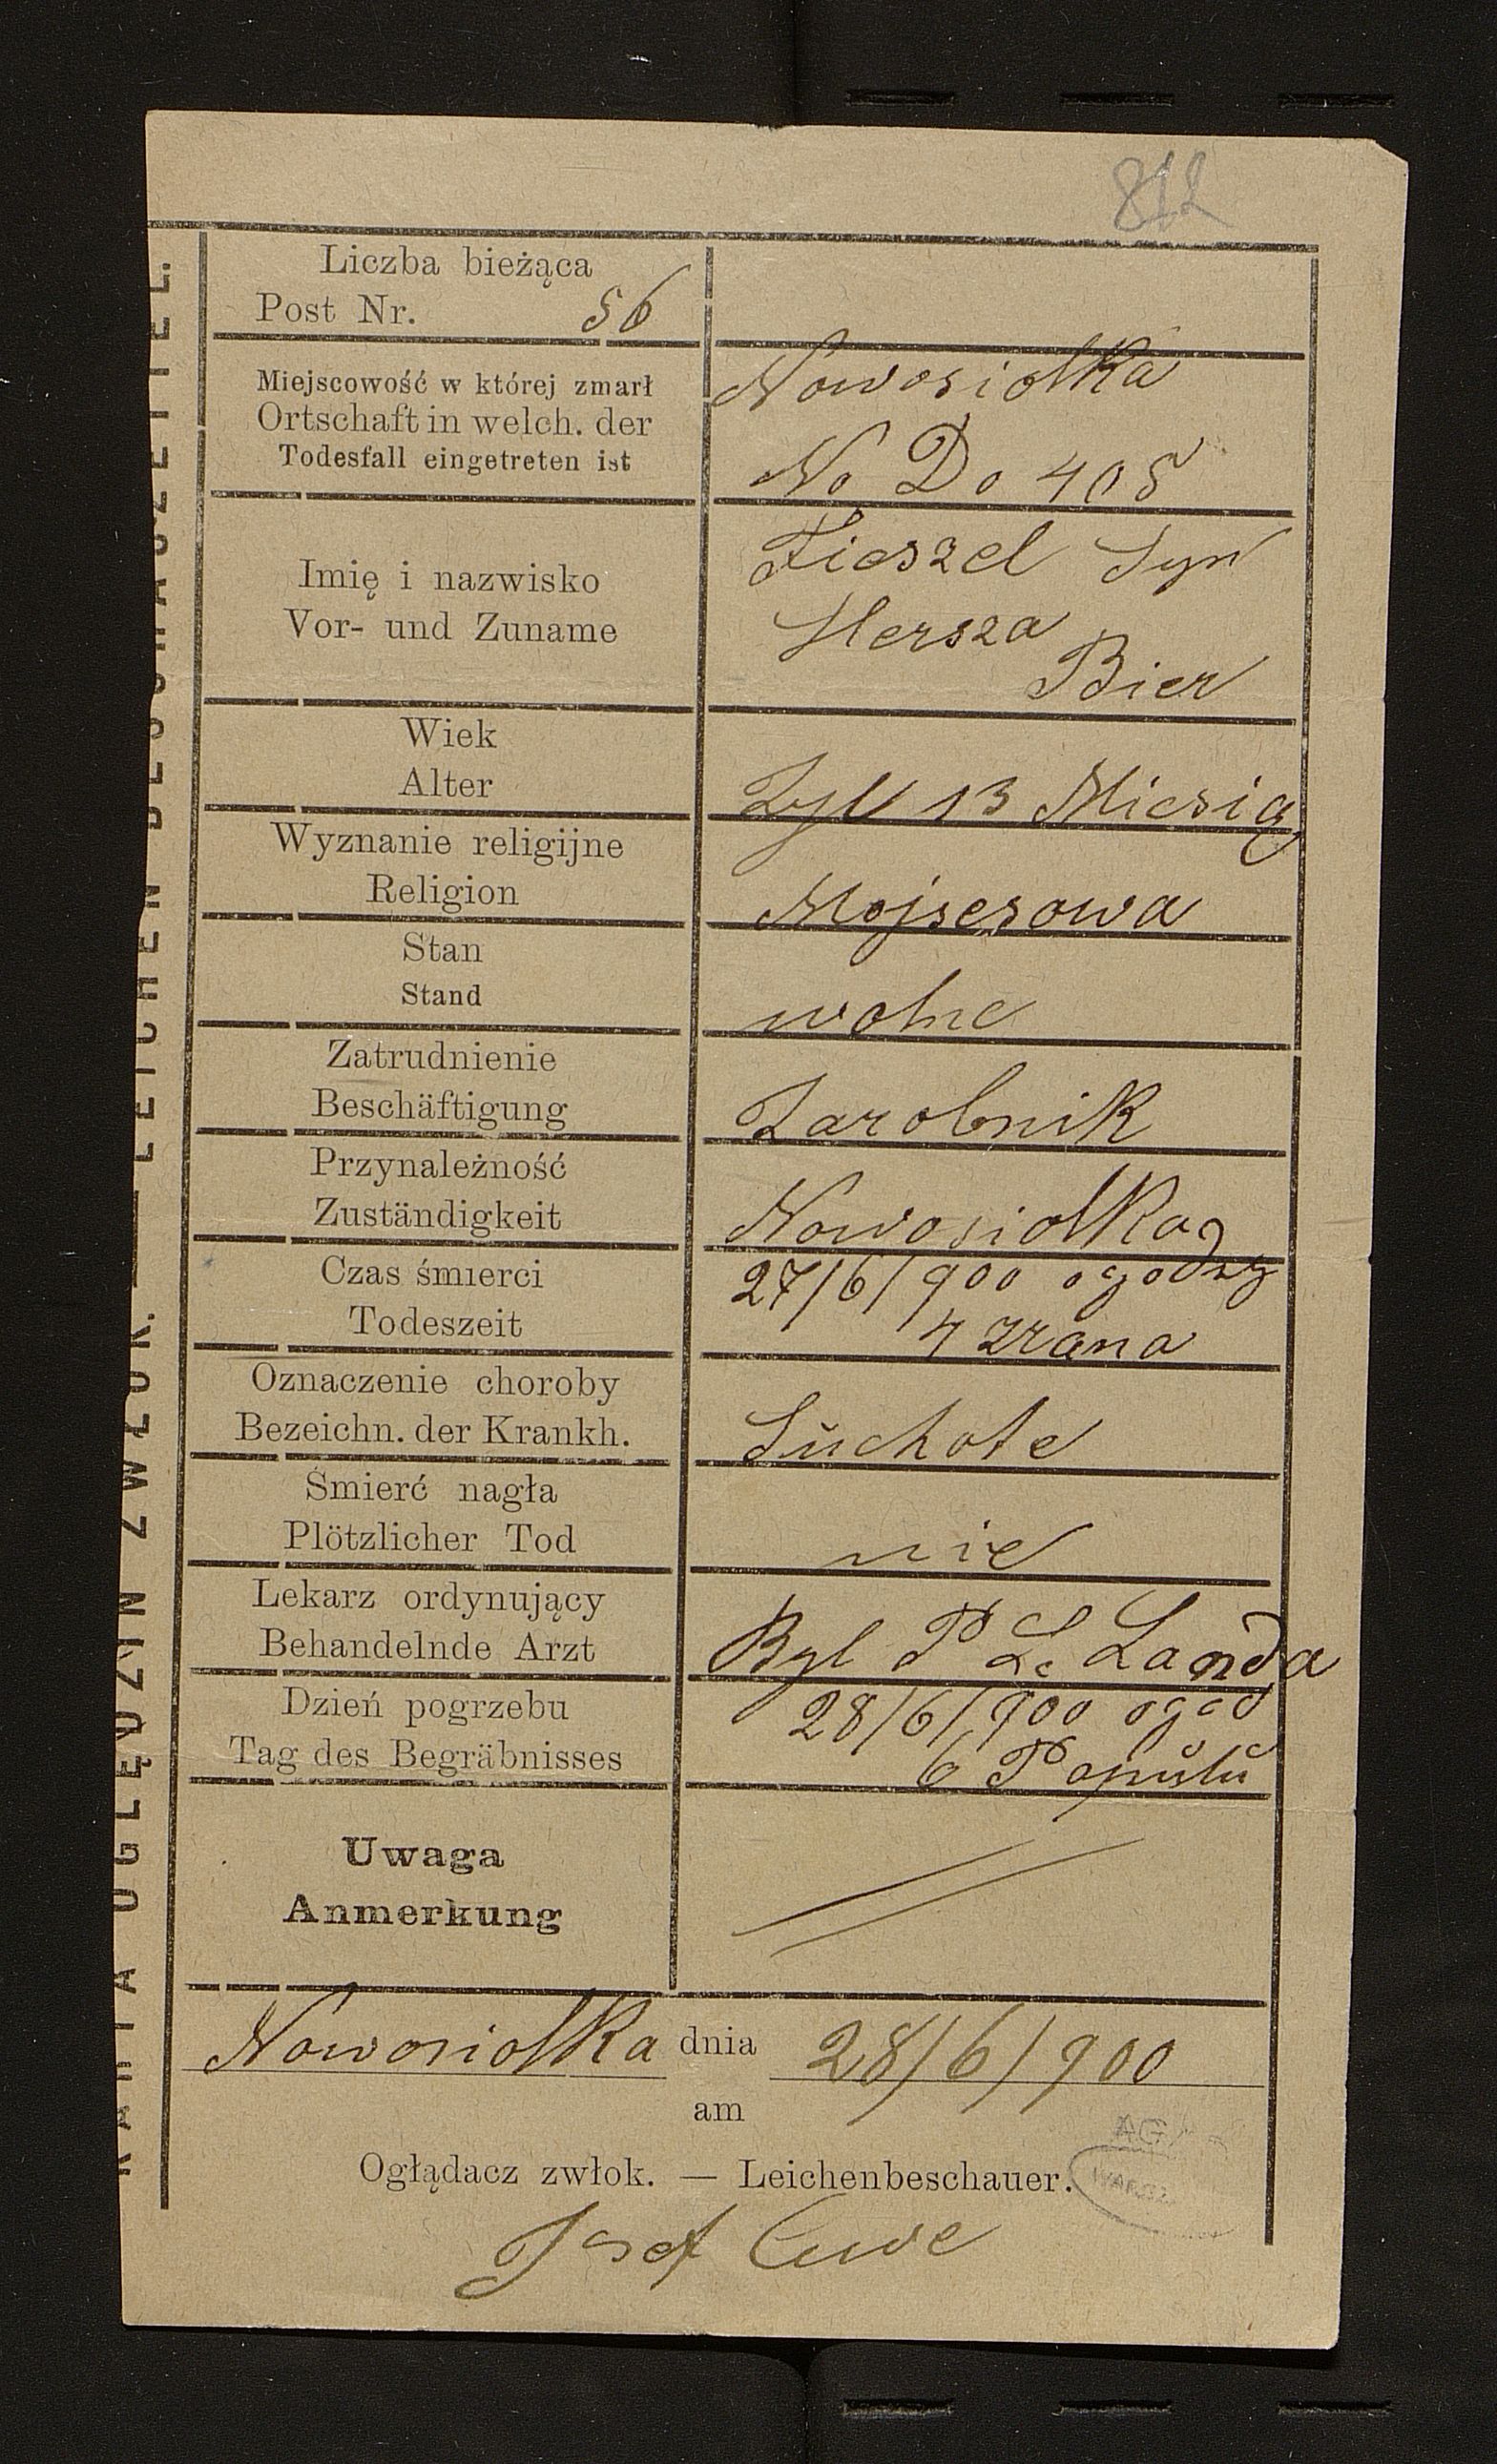 812
KARTA OGLĘDZIN ZWŁOK. — LEICHEN BESCHAUZETTEL.
Liczba bieżąca
Post Nr. 56
Miejscowość w której zmarł
Ortschaft in welch. der
Todesfall eingetreten ist
Nowosiołka
No Do 405
Imię i nazwisko
Vor- und Zuname
Syn
Hersza
Bier
Wiek
Alter
Żył 13 Miesią
Wyznanie religijne
Religion
Mojsesowa
Stan
Stand
wolne
Zatrudnienie
Beschäftigung
Zarobnik
Przynależność
Zuständigkeit
Nowosiołka
Czas śmierci
Todeszeit
27/6/900 o godzy
4 zrana
Oznaczenie choroby
Bezeichn. der Krankh.
Suchote
Śmierć nagła
Plötzlicher Tod
nie
Lekarz ordynujący
Behandelnde Arzt
Byl P Landa
Dzień pogrzebu
Tag des Begräbnisses
28/6/900 ogod
6 Popułu
Uwaga
Anmerkung
Nowosiołka dnia 28/6/900
am
Oglądacz zwłok. — Leichenbeschauer.
Josef